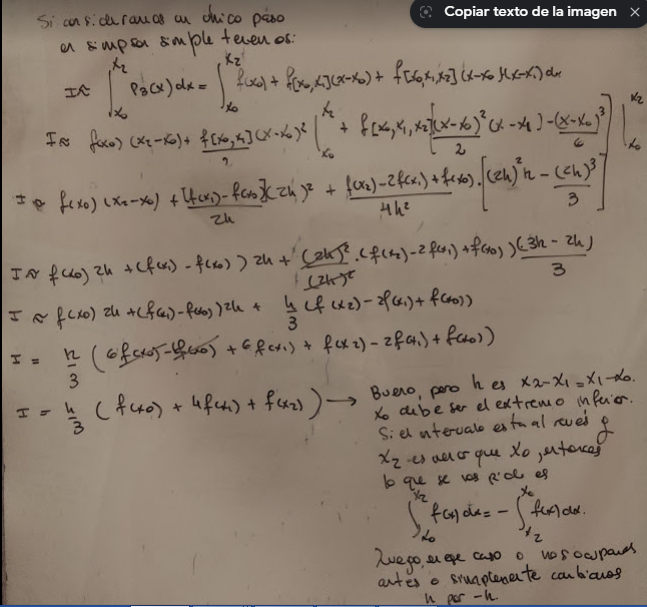 Copiar texto de la imagen
Si consideramos un único paso
en simpson simple tenemos:
I≈ ∫_{x0}^{x2} P3(x)dx = ∫_{x0}^{x2} f(x0) + f[x0,x1](x-x0) + f[x0,x1,x2](x-x0)(x-x1)dx
I≈ f(x0) (x2-x0) + f[x0,x1]/2 (x-x0)² |_{x0}^{x2} + f[x0,x1,x2] [(x-x0)²/2 (x-x1) - (x-x0)³/6] |_{x0}^{x2}
I≈ f(x0) (x2-x0) + [f(x1)-f(x0)](2h)²/2h + f(x2)-2f(x1)+f(x0)/4h² · [(2h)²h - (2h)³/3]
I≈ f(x0) 2h + (f(x1) - f(x0)) 2h + (2h)²/(2h)² · (f(x2)-2f(x1)+f(x0)) (3h-2h)/3
I≈ f(x0) 2h + (f(x1)-f(x0))2h + h/3 (f(x2)-2f(x1)+f(x0))
I = h/3 (6f(x0)-6f(x0) + 6f(x1) + f(x2)-2f(x1)+f(x0))
I = h/3 (f(x0) + 4f(x1) + f(x2)) →
Bueno, pero h es x2-x1=x1-x0.
x0 debe ser el extremo inferior.
Si el intervalo esta al revés y
x2 es menor que x0, entonces
lo que se nos pide es
∫_{x0}^{x2} f(x)dx = - ∫_{x2}^{x0} f(x)dx.
Luego, en ese caso o nos ocupamos
antes o simplemente cambiamos
h por -h.